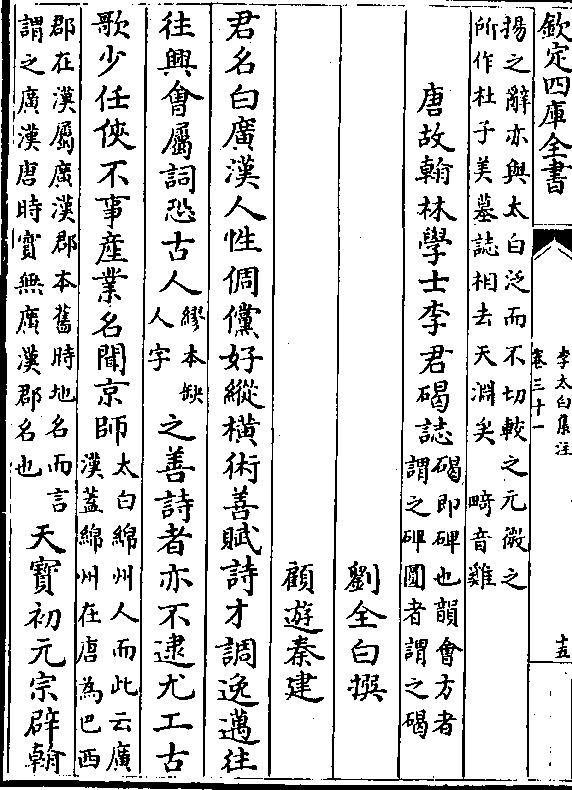 欽定四庫全書
李太白集注
卷三十一
十五
揚之辭亦與太白泛而不切較之元微之
所作杜子美墓誌相去天淵矣 畸音雞
唐故翰林學士李君碣誌碣即碑也韻會方者
謂之碑圓者謂之碣
劉全白撰
顧遊秦建
君名白廣漢人性倜儻好縱橫術善賦詩才調逸邁往
往興會屬詞恐古人繆本缺
人字之善詩者亦不逮尤工古
歌少任俠不事産業名聞京師太白綿州人而此云廣
漢蓋綿州在唐為巴西
郡在漢屬廣漢郡本舊時地名而言
謂之廣漢唐時實無廣漢郡名也天寶初元宗辟翰